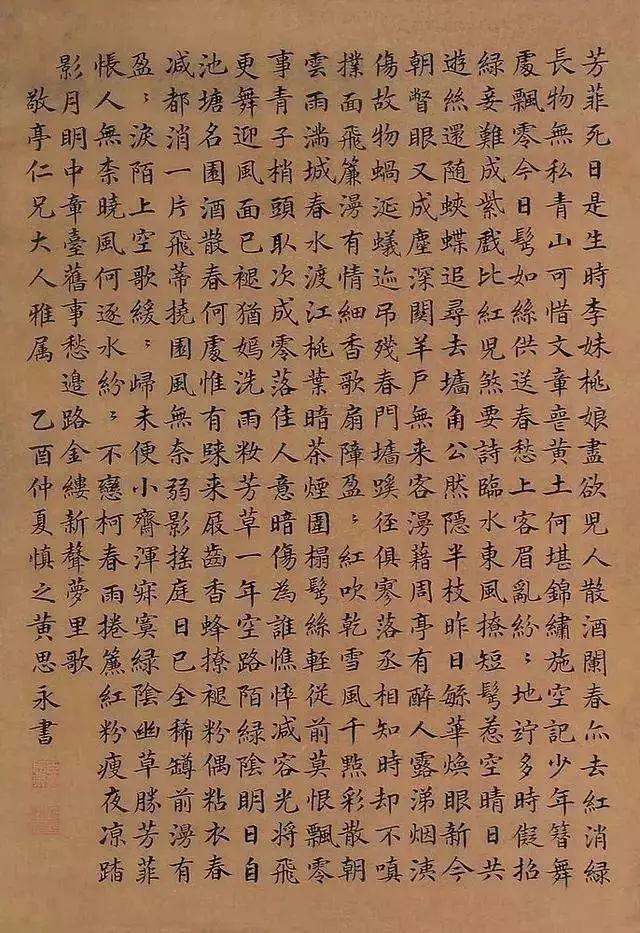 芳菲死日是生時李妹桃娘盡欲兒人散酒闌春尒去紅消綠
長物無私青山可惜文章喪黃土何堪錦繡施空記少年簪舞
處飄零今日髩如絲供送春愁上客眉亂紛〻地竚多時假招
綠妾難成紫戲比紅兒煞要詩臨水東風撩短髩惹空晴日共
遊絲還随蛺蝶追尋去墻角公然隱半枝昨日緐華煥眼新今
朝瞥眼又成塵深関羊戶無来客漫藉周亭有醉人露涕烟洟
傷故物蝸涎蟻迹吊殘春門墻蹊徑俱寥落丞相知時却不嗔
撲面飛簾漫有情細香歌扇障盈〻紅吹乾雪風千點彩散朝
雲雨滿城春水渡江桃葉暗茶煙圍榻髩絲輕従前莫恨飄零
事青子梢頭取次成零落佳人意暗傷為誰憔悴减容光將飛
更舞迎風面已褪猶嫣洗雨妝芳草一年空路陌綠陰明日自
池塘名園酒散春何處惟有睞来屐齒香蜂撩褪粉偶粘衣春
减都消一片飛蒂撓園風無奈弱影搖庭日已全稀罇前漫有
盈〻淚陌上空歌緩〻歸未便小齊渾寂寞綠陰幽草勝芳菲
悵人無柰曉風何逐水紛〻不戀柯春雨捲簾紅粉瘦夜凉踏
影月明中章臺舊事愁邉路金縷新聲夢里歌
敬亭仁兄大人雅属 乙酉仲夏慎之黃思永書